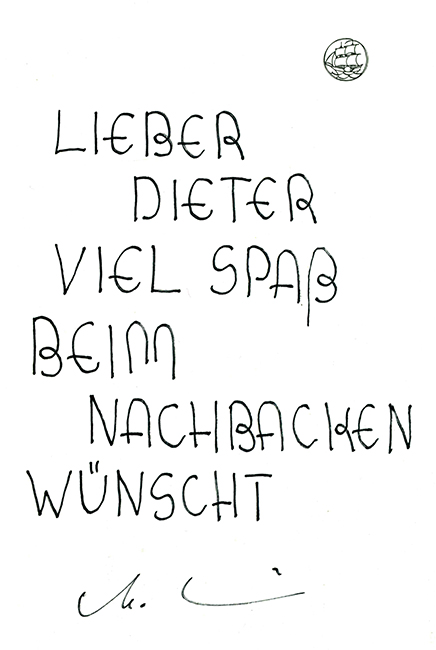 LIEBER
DIETER
VIEL SPAß
BEIM
NACHBACKEN
WÜNSCHT